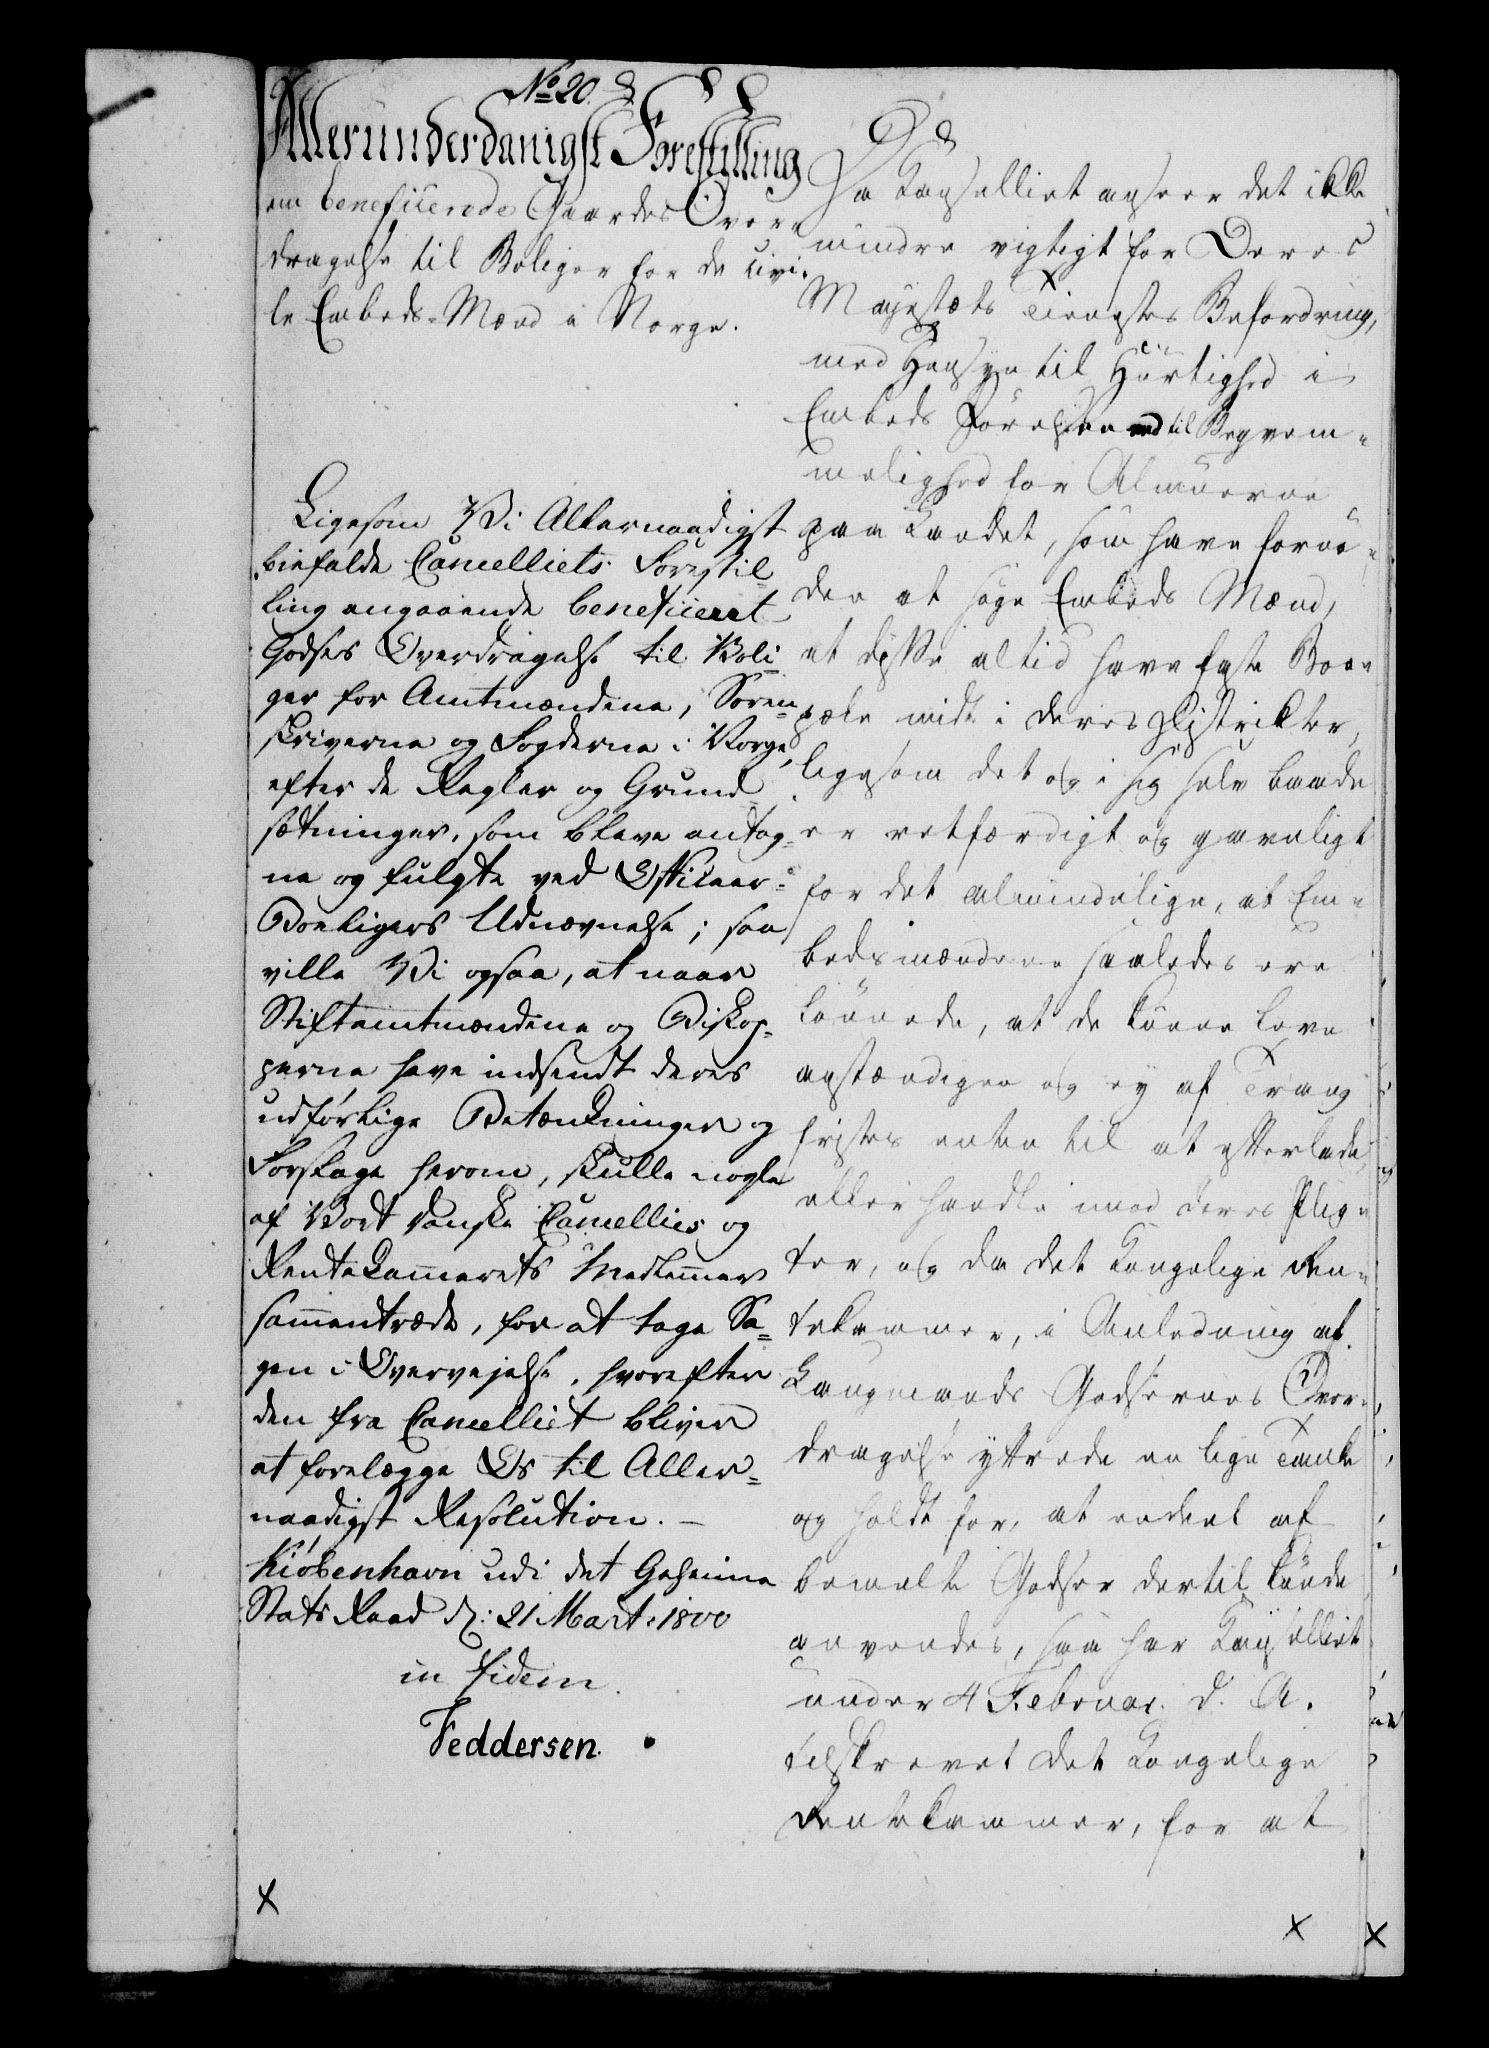 No 20.
Allerunderdanigst Forestilling
om beneficerede Gaardes Over-
dragelse til Boliger for de civi-
le Embeds-Mænd i Norge.
Ligesom Vi Allernaadigst
biefalde Cancelliets Forestil-
ling angaaende beneficeret
Godses Overdragelse til Boli-
ger for Amtmændene, Soren-
skriverne og Fogderne i Norge,
efter de Regler og Grund-
sætninger, som bleve antag-
ne og fulgte ved Officeer-
Boeligers Udnævnelse; saa
ville Vi ogsaa, at naar
Stiftamtmændene og Biskop-
perne have indsendt deres
udførlige Betænkninger og
Forslage herom, skulle nogle
af Vort danske Cancellies og
RenteKamerets Medlemer
samentræde, for at tage Sa-
gen i Overvejelse, hvorefter
den fra Cancelliet bliver
at forelægge Os til Aller-
naadigst Resolution. –
Kiøbenhavn udi det Geheime
Stats Raad d: 21 Mart: 1800
in fidem.
Feddersen.
Da Kanselliet anseer det ikke
mindre vigtigt for Deres
Majestæts Tienestes Befordring,
med Hensyn til Hurtighed i
Embeds Førelsen end til Beqvem-
melighed for Almuerne
paa Landet, som have fornø-
den at søge Embeds Mænd,
at disse altid have faste Boe-
pæle midt i deres Distrikter,
ligesom det og i sig selv baade
er retfærdigt og gavnligt
for det almindelige, at Em-
bedsmændene saaledes ere
lønnede, at de kunne leve
anstændigen og ey af Trang
fristes enten til at efterlade,
eller handle imod deres Plig-
ter, og da det Kongelige Ren-
tekammer, i Anledning af
Laugmands Godsernes Over-
dragelse yttrede en lige Tanke
og holdt for, at endeel af
bemelte Godser dertil kunde
anvendes, saa har Kanselliet
under 4 Februar. d. A.
tilskrevet det Kongelige
Rentekammer, for at